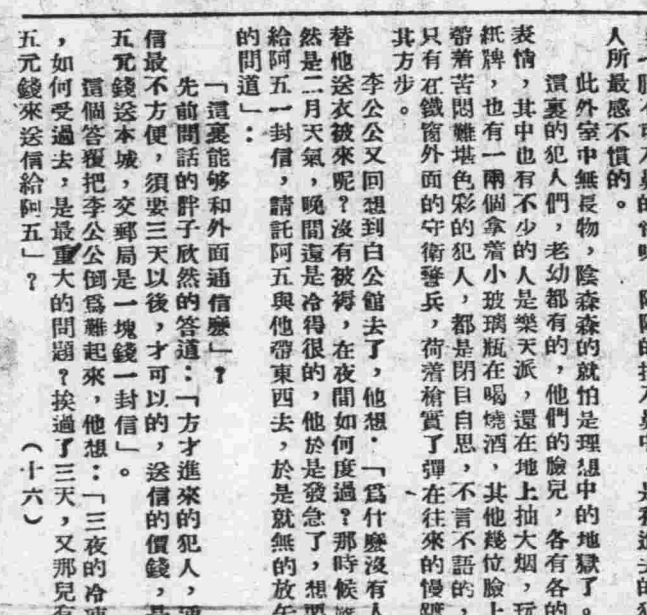 人所最感不慣的。
此外室中無長物，陰森森的就怕是理想中的地獄了。
這裏的犯人們，老幼都有的，他們的臉兒，各有各的
表情，其中也有不少的人是樂天派，還在地上抽大烟，玩
紙牌，也有一兩個拿着小玻璃瓶在喝燒酒，其他幾位臉上
帶着苦悶難堪色彩的犯人，都是閉目自思，不言不語的，
只有在鐵窗外面的守衛警兵，荷着槍實了彈在往來的慢踱
其方步。
李公公又回想到白公館去了，他想·「爲什麼沒有人
替他送衣被來呢？沒有被褥，在夜間如何度過？那時候
然是二月天氣，晚間還是冷得很的，他於是發急了，想要
給阿五一封信，請託阿五與他帶東西去，於是就無的放矢
的問道」：
「這裏能够和外面通信麼」？
先前問話的胖子欣然的答道：「方才進來的犯人，通
信最不方便，須要三天以後，才可以的，送信的價錢，
五元錢送本城，交郵局是一塊錢一封信」。
這個答覆把李公公倒爲難起來，他想：「三夜的冷凍
，如何受過去，是最重大的問題？挨過了三天，又那兒有
五元錢來送信給阿五」？
（十六）